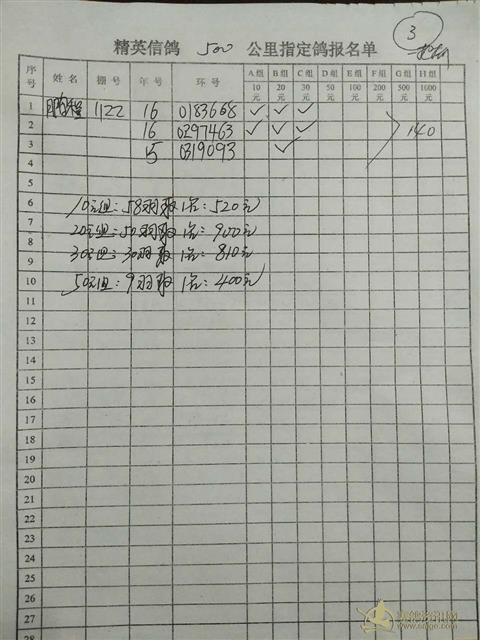 3
精英信鸽 500 公里指定鸽报名单
序号 姓名 棚号 年号 环号 A组 10元 B组 20元 C组 30元 D组 50元 E组 100元 F组 200元 G组 500元 H组 1000元
1 1122 16 0183668 ✓ ✓ ✓
2 16 0297463 ✓ ✓ ✓ 140
3 15 0319093 ✓
4
5
6 10元组:58羽取1名:520元
7 20元组:50羽取1名:900元
8
9 30元组:30羽取1名:810元
10 50元组:9羽取1名:400元
11
12
13
14
15
16
17
18
19
20
21
22
23
24
25
26
27
28